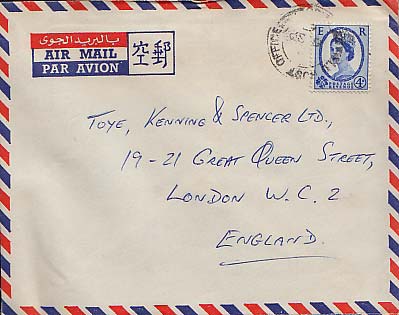 بالبريد الجوى
AIR MAIL
PAR AVION
空郵
OFFICE
E R
4D
TOYE, KENNING & SPENCER LTD.,
19-21 GREAT QUEEN STREET,
LONDON W.C.2
ENGLAND.